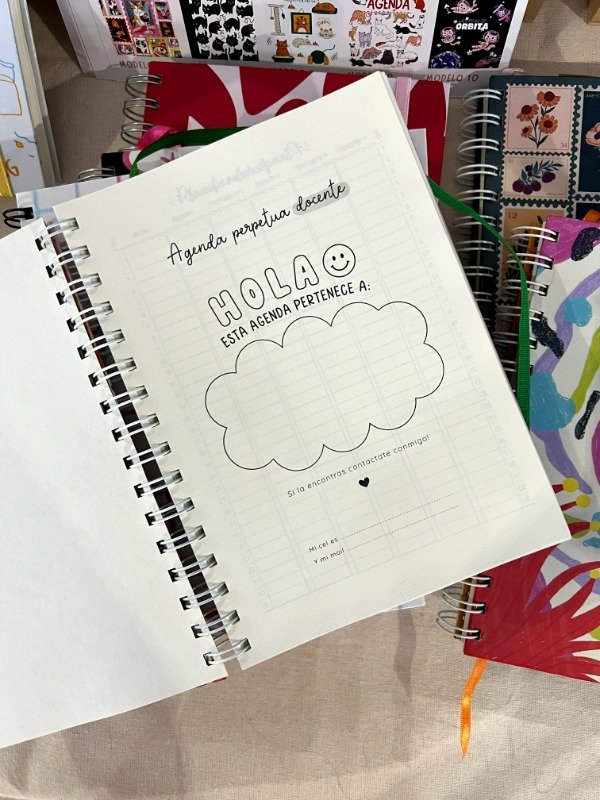 AGENDA
ORBITA
MODELO 10
Agenda perpetua docente
HOLA
ESTA AGENDA PERTENECE A:
Si la encontras contactate conmigo!
Mi cel es
Y mi mail